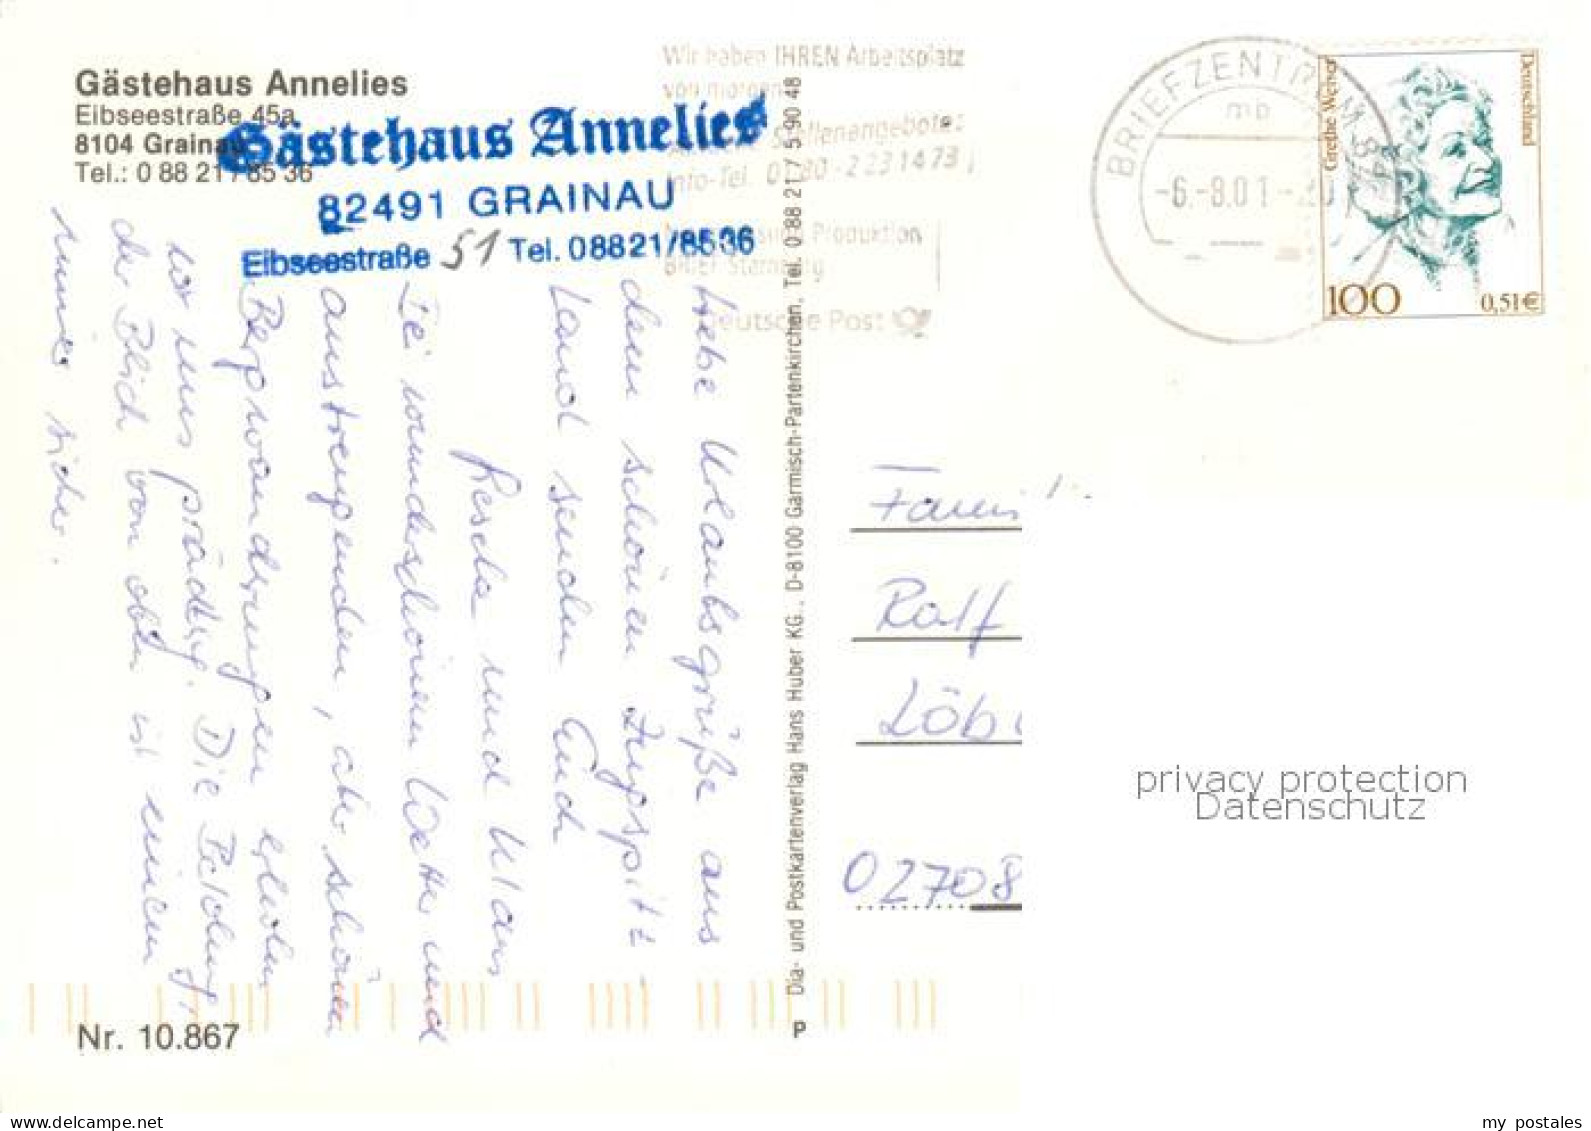 Gästehaus Annelies
Eibseestraße 45a
8104 Grainau
Tel.: 0 88 21 / 85 36
Gästehaus Annelies
82491 GRAINAU
Eibseestraße 51 Tel. 08821/8536
Wir haben IHREN Arbeitsplatz
von morgen
Stellenangebote:
Info-Tel. 0180-2231473
Produktion
BRIEF Starnberg
Deutsche Post
BRIEFZENTRUM 82
mb
-6.-8.01-20
Deutschland
Grethe Weiser
100
0,51€
Liebe Urlaubsgrüße aus
dem schönen Zugspitz-
Land senden Euch
Gescha und Klaus
Bei wunderschönem Wetter und
anstrengenden, aber schönen
Bergwanderungen erholen
wir uns prächtig. Die Belohnung,
der Blick von oben ist einem
immer sicher.
Dia- und Postkartenverlag Hans Huber KG., D-8100 Garmisch-Partenkirchen, Tel. 0 88 21 / 5 90 48
P
Nr. 10.867
Famil
Ralf
Löb
02708
privacy protection
Datenschutz
my postales